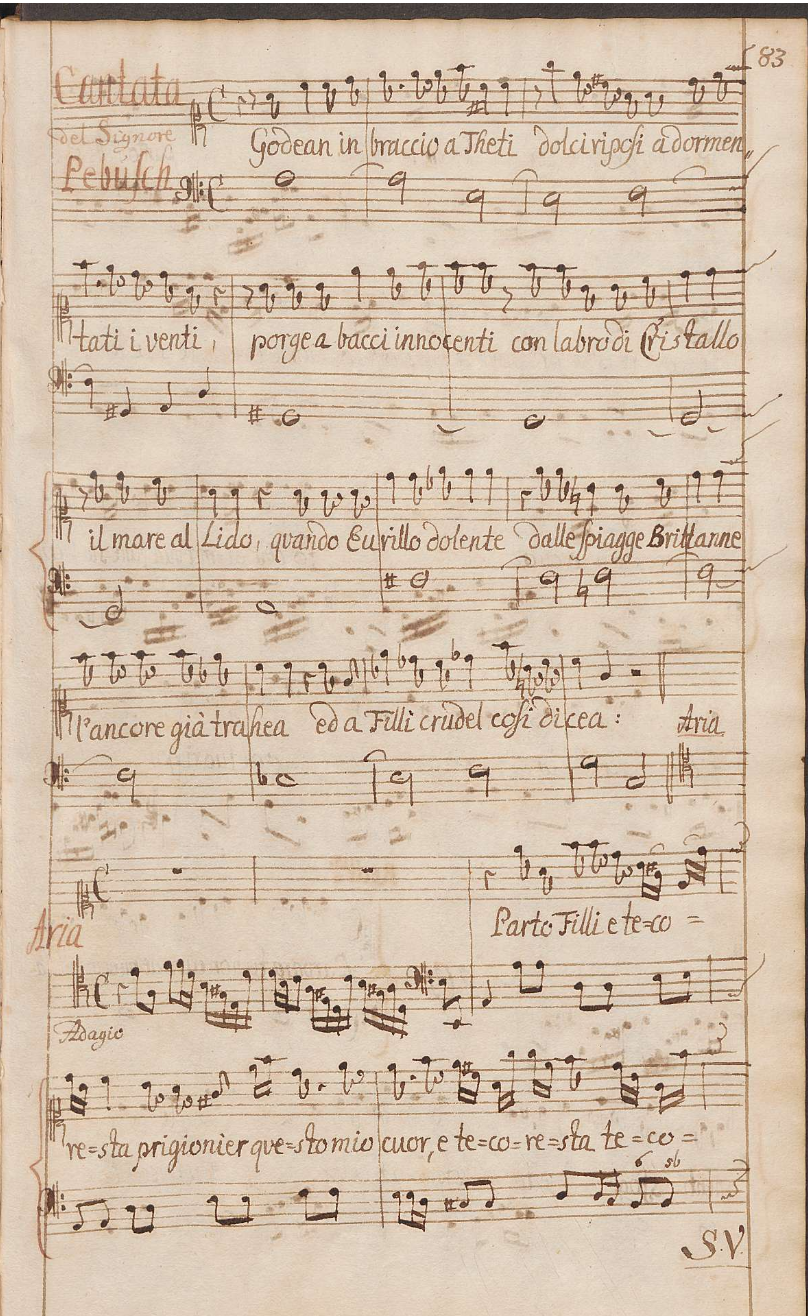 83
Cantata
del Signore
Pebusch
Godean in braccio a Theti dolci riposi adormen„
tati i venti, porge a bacci innocenti con labro di Cristallo
il mare al Lido, quando Eurillo dolente dalle spiagge Brittanne
l'ancore già trahea ed a Filli crudel cosi dicea: Aria
Parto Filli e te=co =
Aria
Adagio
re=sta prigionier que=sto mio cuor, e te=co=re=sta te=co=
6 5b
S.V.